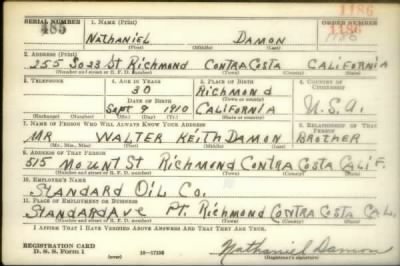 1186
SERIAL NUMBER 1. NAME (Print) ORDER NUMBER
485 NATHANIEL DAMON 1186
(First) (Middle) (Last)
2. ADDRESS (Print)
255 SO 23 ST RICHMOND CONTRA COSTA CALIFORNIA
(Number and street or R. F. D. number) (Town) (County) (State)
3. TELEPHONE 4. AGE IN YEARS 5. PLACE OF BIRTH 6. COUNTRY OF CITIZENSHIP
30 RICHMOND
DATE OF BIRTH (Town or county)
SEPT 9 1910 CALIFORNIA U.S.A.
(Exchange) (Number) (Mo.) (Day) (Yr.) (State or country)
7. NAME OF PERSON WHO WILL ALWAYS KNOW YOUR ADDRESS 8. RELATIONSHIP OF THAT PERSON
MR WALTER KEITH DAMON BROTHER
(Mr., Mrs., Miss) (First) (Middle) (Last)
9. ADDRESS OF THAT PERSON
515 MOUNT ST RICHMOND CONTRA COSTA CALIF.
(Number and street or R. F. D. number) (Town) (County) (State)
10. EMPLOYER'S NAME
STANDARD OIL CO.
11. PLACE OF EMPLOYMENT OR BUSINESS
STANDARD AVE PT. RICHMOND CONTRA COSTA CAL.
(Number and street or R. F. D. number) (Town) (County) (State)
I AFFIRM THAT I HAVE VERIFIED ABOVE ANSWERS AND THAT THEY ARE TRUE.
REGISTRATION CARD
D. S. S. Form 1 (over) Nathaniel Damon
(Registrant's signature)